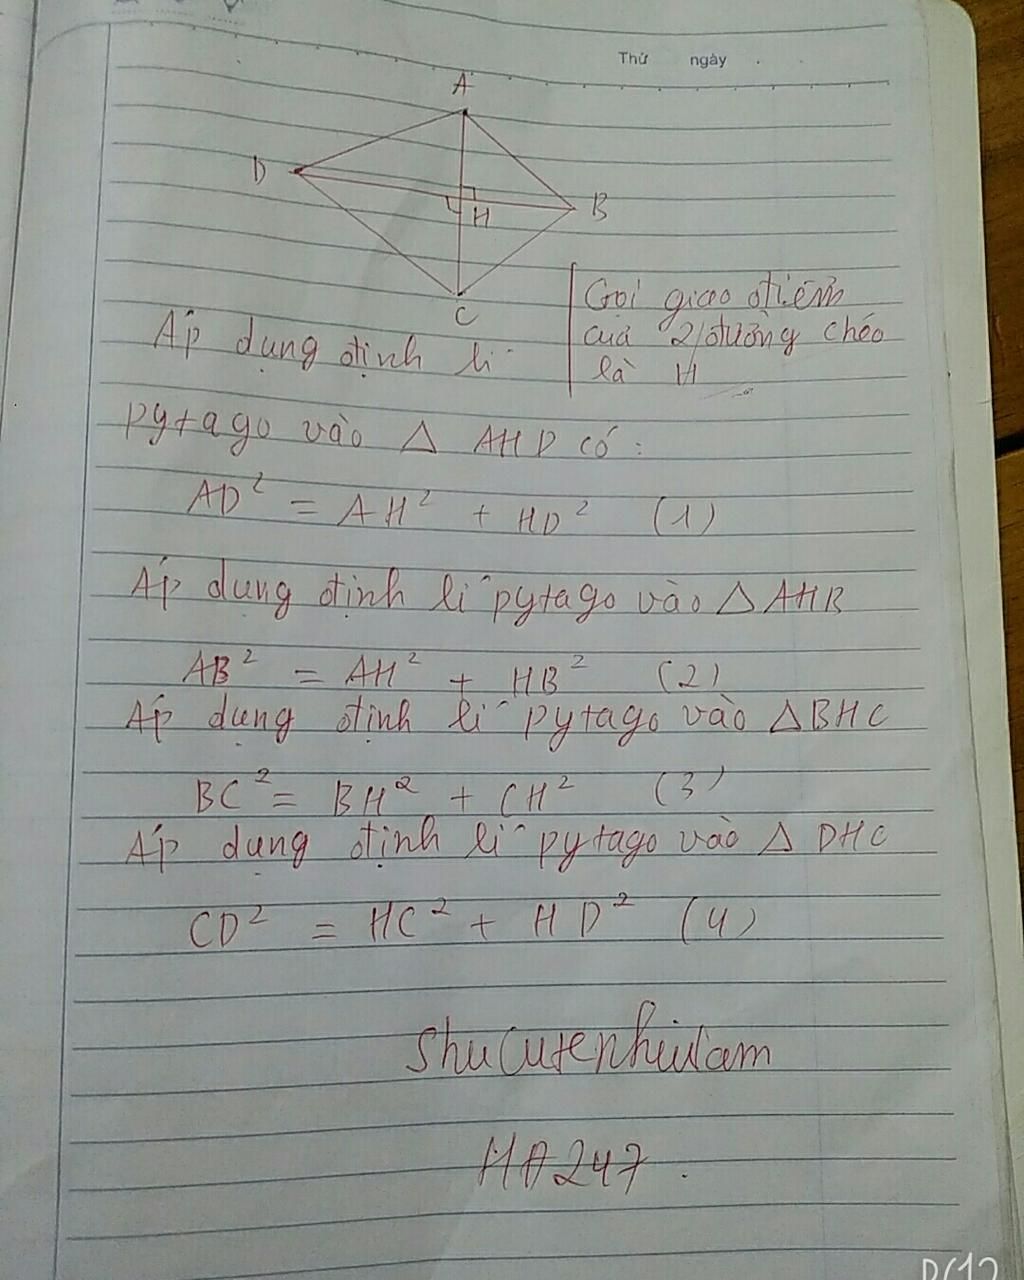 Thứ ngày
A
D
B
H
C
Gọi giao điểm
của 2 đường chéo
là H
Áp dụng định lí
pytago vào △ AHD có:
AD² = AH² + HD² (1)
Áp dụng định lí pytago vào △ AHB
AB² = AH² + HB² (2)
Áp dụng định lí pytago vào △ BHC
BC² = BH² + CH² (3)
Áp dụng định lí pytago vào △ DHC
CD² = HC² + HD² (4)
ShuCutenhiulam
HA247.